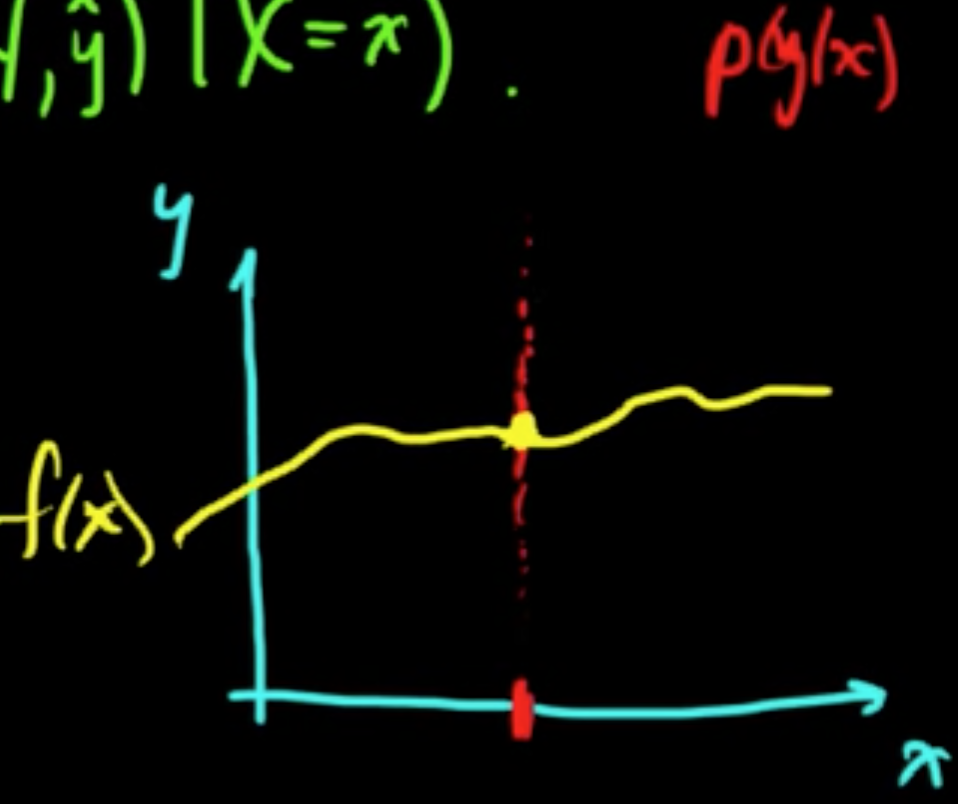 , ŷ) | X = x) . p(y|x)
y
f(x)
x